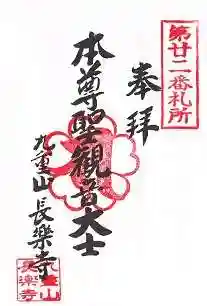 第廿二番札所
奉拜
本尊聖觀音大士
九重山 長樂寺
九重山
長樂寺